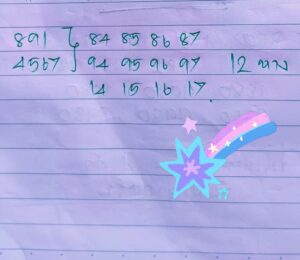 891 } 84 85 86 87
4567 } 94 95 96 97 12 หาง
14 15 16 17.